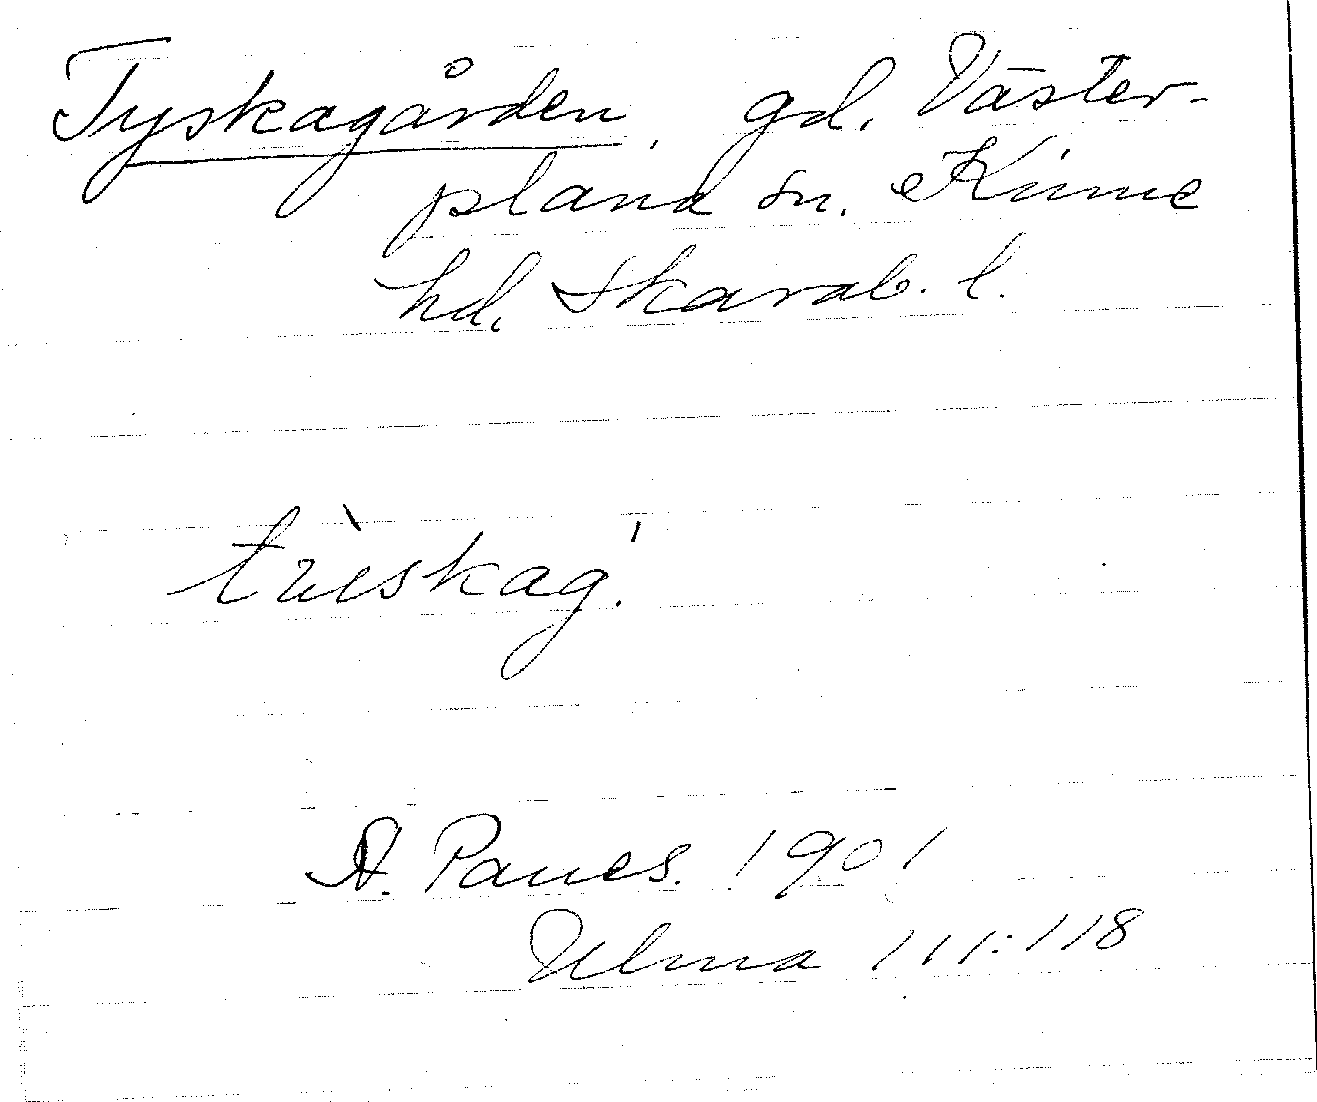 Tyskagården, gd. Väster-
plana sn. Kinne
hd. Skarab. l.
A. Paues. 1901
Ulma 111:118